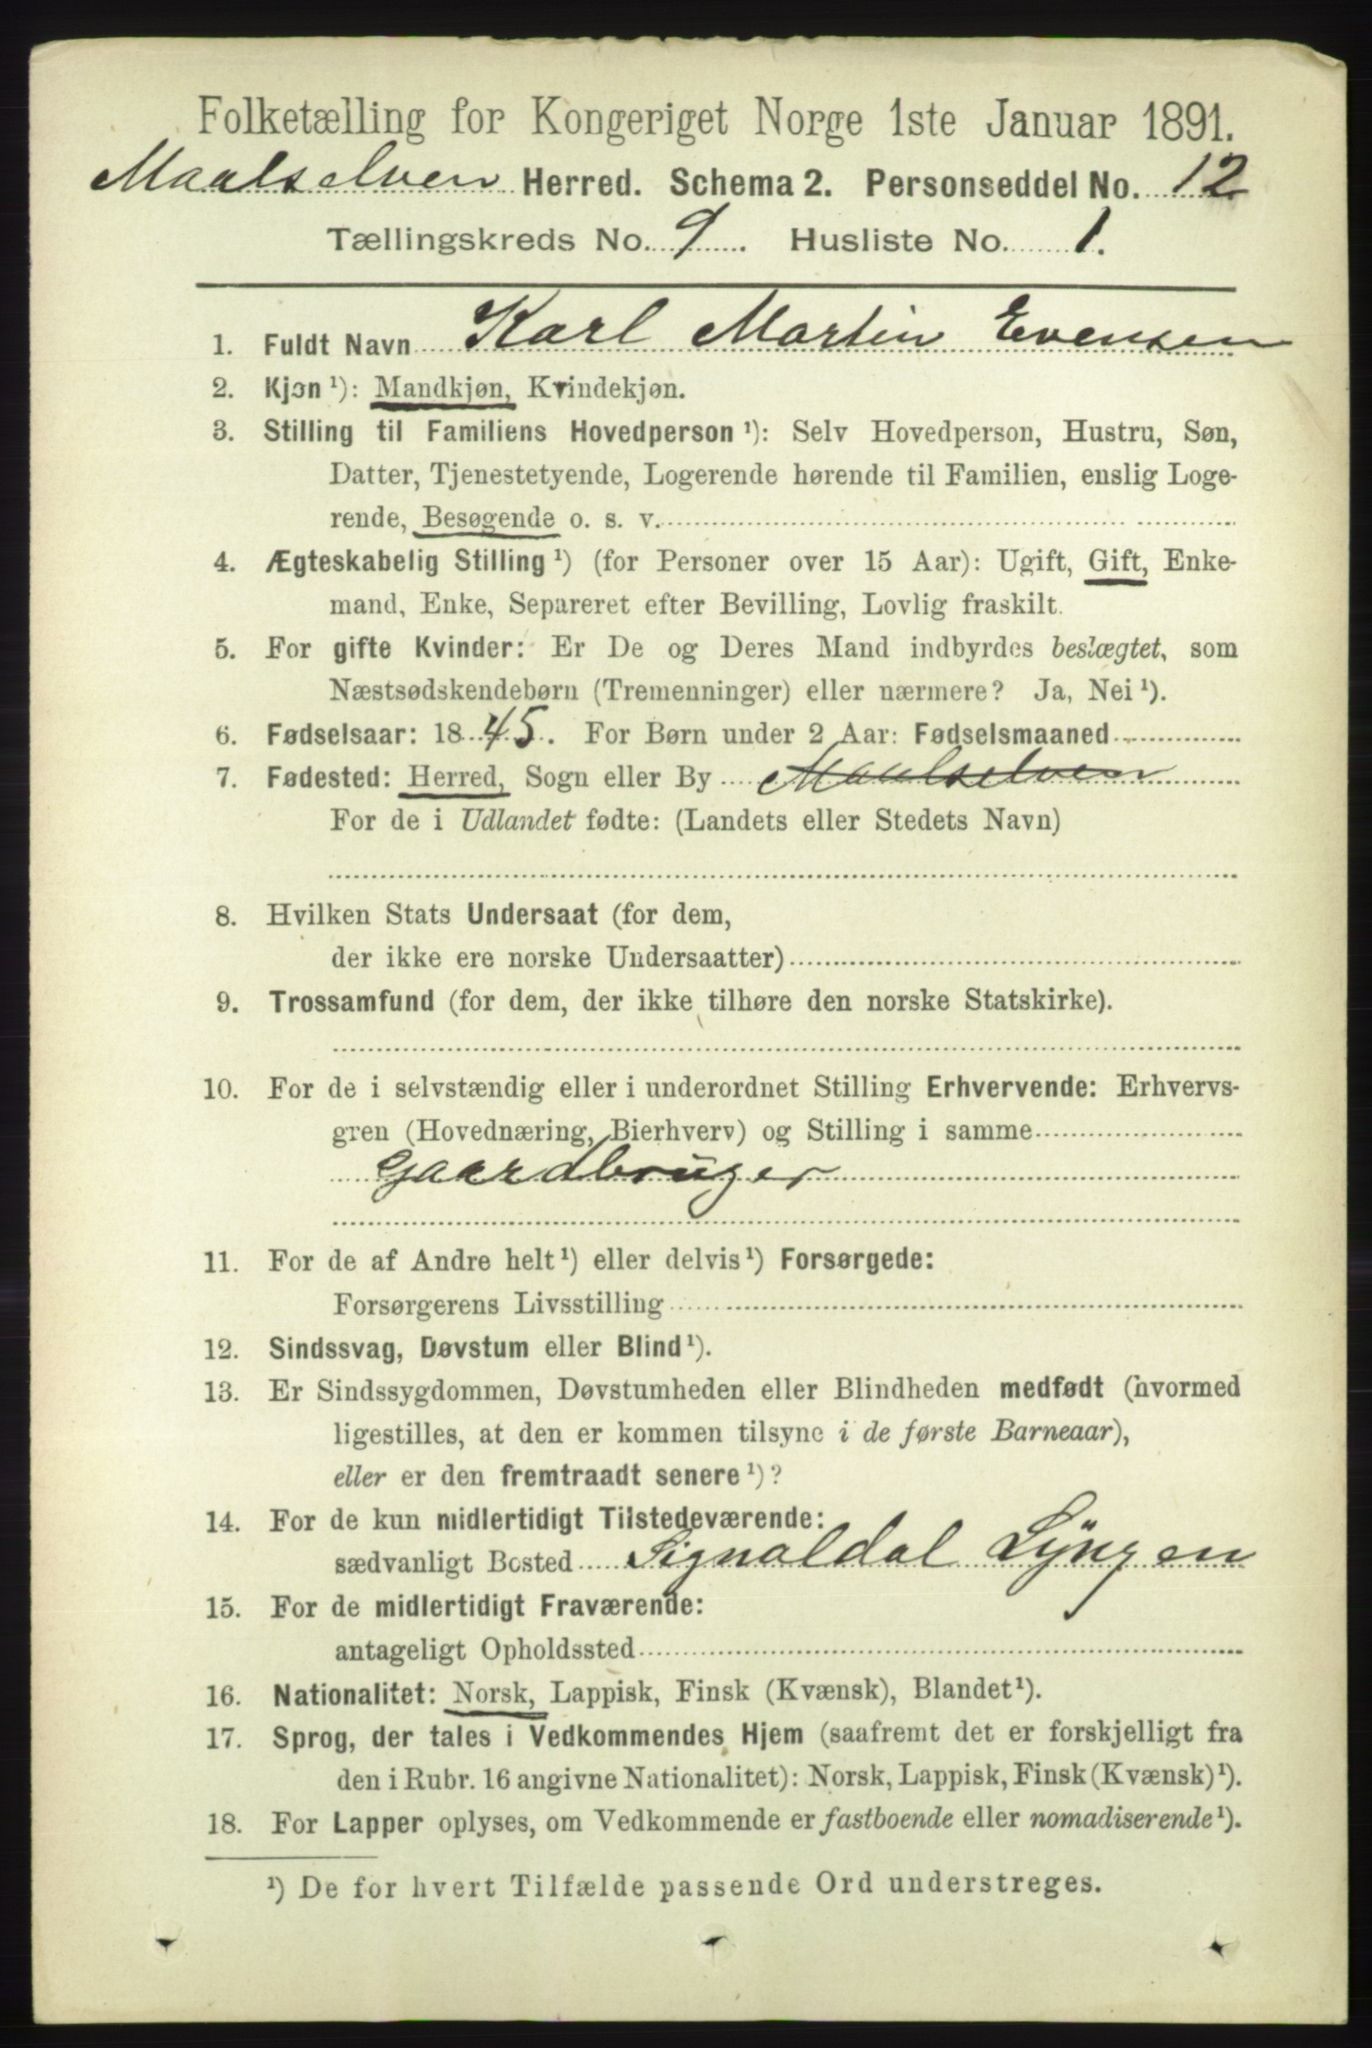 Folketælling for Kongeriget Norge 1ste Januar 1891.
Maalselven Herred. Schema 2. Personseddel No. 12
Tællingskreds No. 9. Husliste No. 1.
1. Fuldt Navn Karl Martin Evensen
2. Kjøn ¹): Mandkjøn, Kvindekjøn.
3. Stilling til Familiens Hovedperson ¹): Selv Hovedperson, Hustru, Søn,
Datter, Tjenestetyende, Logerende hørende til Familien, enslig Loge-
rende, Besøgende o. s. v.
4. Ægteskabelig Stilling ¹) (for Personer over 15 Aar): Ugift, Gift, Enke-
mand, Enke, Separeret efter Bevilling, Lovlig fraskilt.
5. For gifte Kvinder: Er De og Deres Mand indbyrdes beslægtet, som
Næstsødskendebørn (Tremenninger) eller nærmere? Ja, Nei ¹).
6. Fødselsaar: 1845. For Børn under 2 Aar: Fødselsmaaned
7. Fødested: Herred, Sogn eller By Maalselven
For de i Udlandet fødte: (Landets eller Stedets Navn)
8. Hvilken Stats Undersaat (for dem,
der ikke ere norske Undersaatter)
9. Trossamfund (for dem, der ikke tilhøre den norske Statskirke).
10. For de i selvstændig eller i underordnet Stilling Erhvervende: Erhvervs-
gren (Hovednæring, Bierhverv) og Stilling i samme
Gaardbruger
11. For de af Andre helt ¹) eller delvis ¹) Forsørgede:
Forsørgerens Livsstilling
12. Sindssvag, Døvstum eller Blind ¹).
13. Er Sindssygdommen, Døvstumheden eller Blindheden medfødt (hvormed
ligestilles, at den er kommen tilsyne i de første Barneaar),
eller er den fremtraadt senere ¹)?
14. For de kun midlertidigt Tilstedeværende:
sædvanligt Bosted Signaldal Lyngen
15. For de midlertidigt Fraværende:
antageligt Opholdssted
16. Nationalitet: Norsk, Lappisk, Finsk (Kvænsk), Blandet ¹).
17. Sprog, der tales i Vedkommendes Hjem (saafremt det er forskjelligt fra
den i Rubr. 16 angivne Nationalitet): Norsk, Lappisk, Finsk (Kvænsk) ¹).
18. For Lapper oplyses, om Vedkommende er fastboende eller nomadiserende ¹).
¹) De for hvert Tilfælde passende Ord understreges.